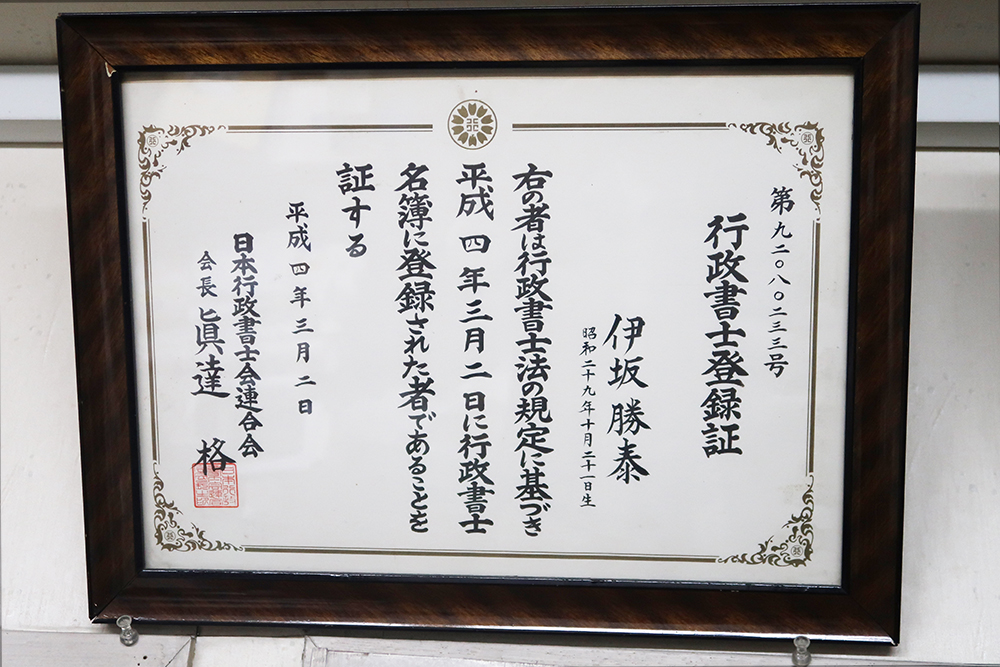 第九二〇八〇二三三号
行政書士登録証
伊坂勝泰
昭和二十九年十月二十一日生
右の者は行政書士法の規定に基づき
平成四年三月二日に行政書士
名簿に登録された者であることを
証する
平成四年三月二日
日本行政書士会連合会
会長 眞達 格